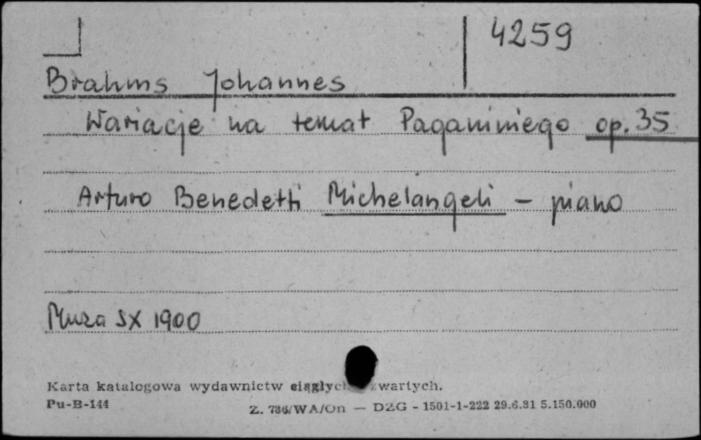 4259
Brahms Johannes
Wariacje na temat Paganiniego op. 35
Arturo Benedetti Michelangeli – piano
Muza SX 1900
Karta katalogowa wydawnictw ciągłych zwartych.
Pu-B-144
Z. 736/WA/On — DZG - 1501-1-222 29.6.81 5.150.000